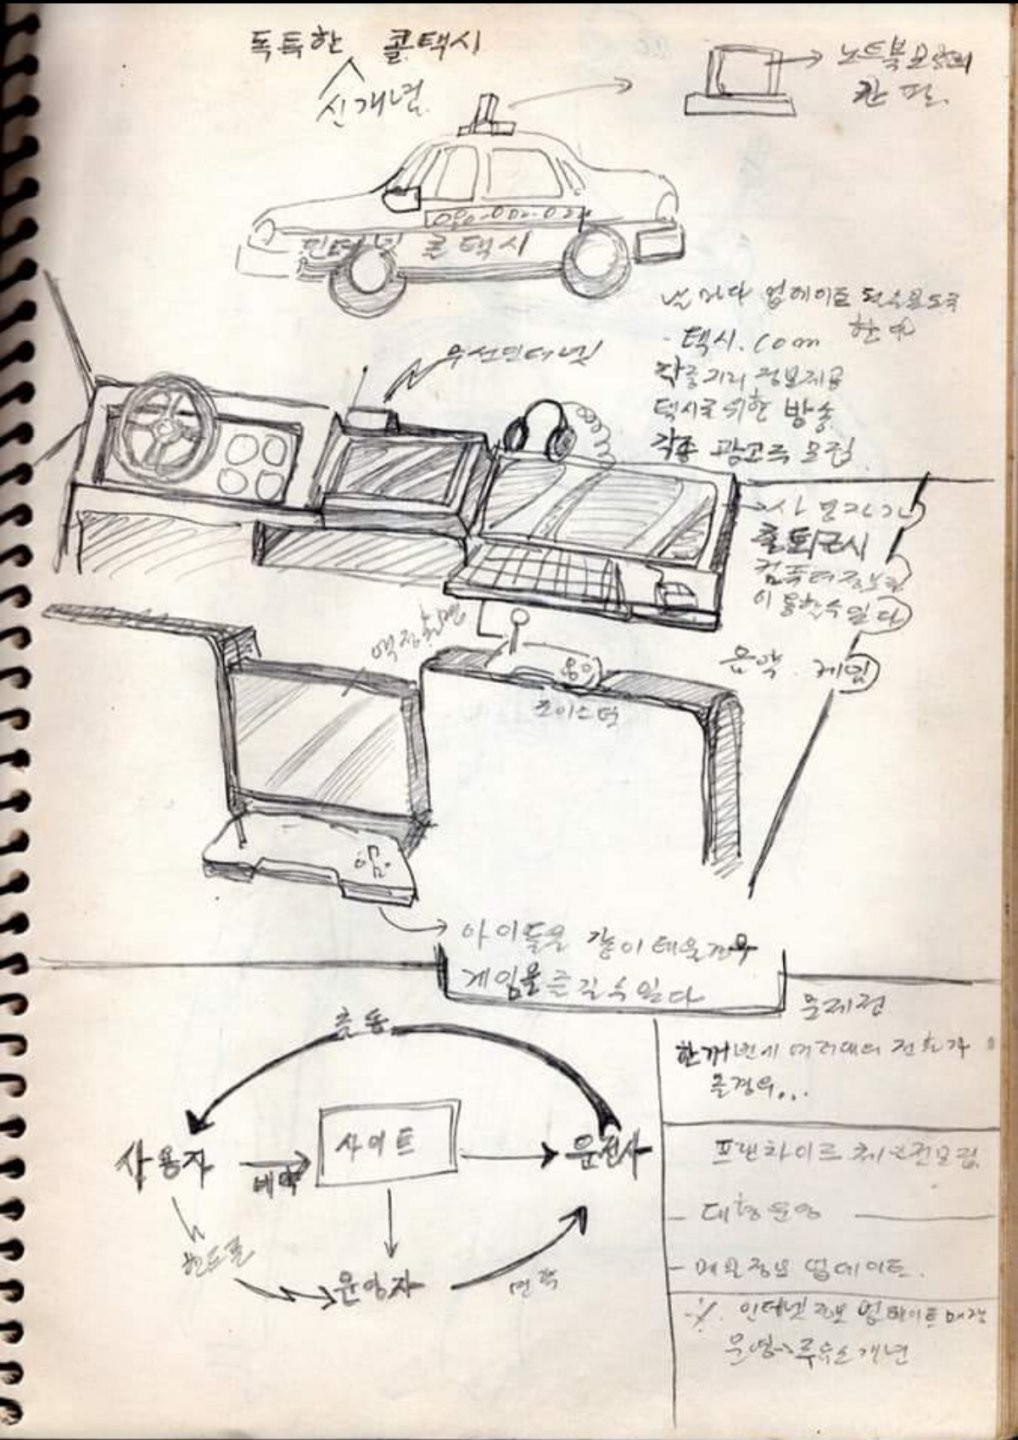 독특한 콜택시
신개념
노트북모양의
간판.
인터넷 콜택시
날마다 업데이트
택시.com
각종거리 정보제공
택시를 위한 방송
각종 광고주 모집
무선인터넷
출퇴근시
컴퓨터
이용할수있다
음악. 게임
액정화면
조이스틱
아이들을 같이 태울경우
게임을 즐길수있다
출동
사용자
예약
사이트
운전사
핸드폰
운영자
연락
문제점
한꺼번에 여러대의 전화가
올경우...
프랜차이즈 체인점모집
대형운영
매일정보 업데이트.
인터넷 정보 업데이트 매장
운영→주유소개념